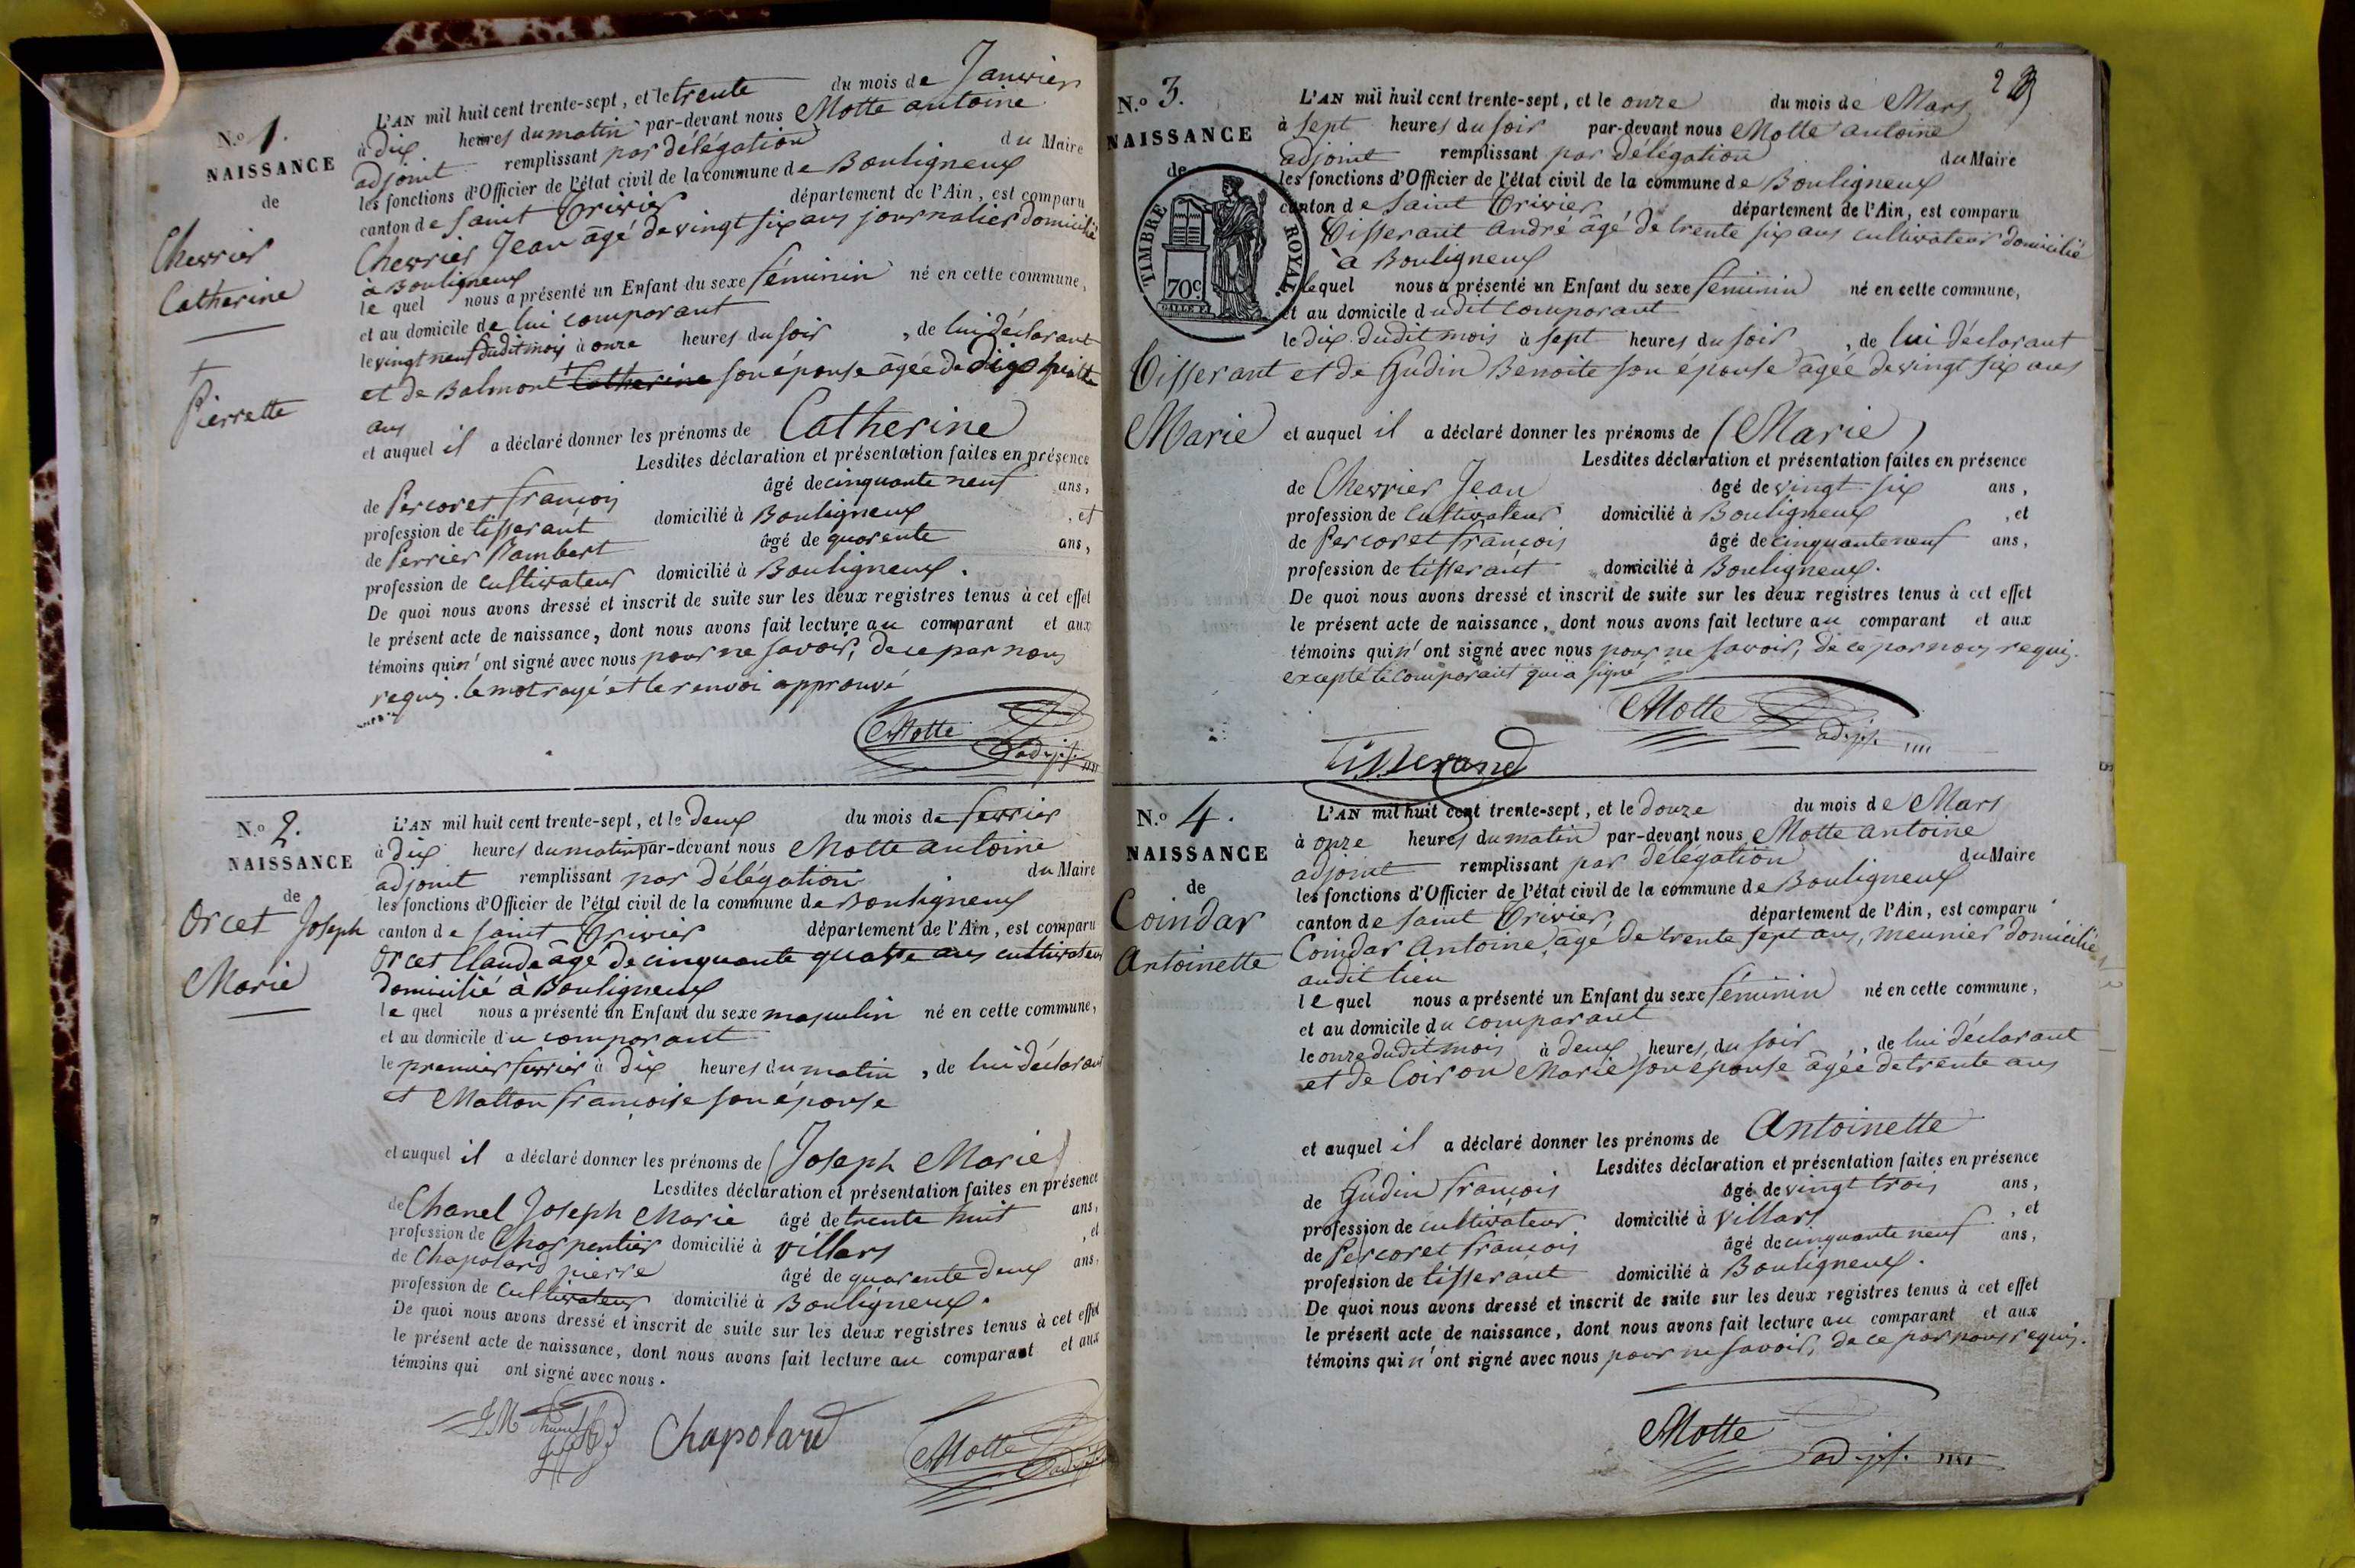 N.º 1.
NAISSANCE
de
Chevrier
Catherine
+
Pierrette
L'AN mil huit cent trente-sept, et le trente du mois de Janvier
à dix heures du matin par-devant nous Motte antoine
adjoint remplissant par délégation du Maire
les fonctions d'Officier de l'état civil de la commune de Bouligneux
canton de Saint Trivier département de l'Ain, est comparu
Chevrier Jean âgé de vingt six ans journalier domicilié
à Bouligneux
le quel nous a présenté un Enfant du sexe féminin né en cette commune,
et au domicile de lui comparant
le vingt neuf dudit mois à onze heures du soir, de lui déclarant
et de Balmont + Catherine son épouse âgée de
ans
et auquel il a déclaré donner les prénoms de Catherine
Lesdites déclaration et présentation faites en présence
de Percoret françois âgé de cinquante neuf ans,
profession de tisserant domicilié à Bouligneux, et
de Perrier Rambert âgé de quarente ans,
profession de Cultivateur domicilié à Bouligneux.
De quoi nous avons dressé et inscrit de suite sur les deux registres tenus à cet effet
le présent acte de naissance, dont nous avons fait lecture au comparant et aux
témoins qui n'ont signé avec nous pour ne savoir, de ce par nous
requis. le mot rayé et le renvoi approuvé
Motte adjt.
N.º 2.
NAISSANCE
de
Orcet Joseph
Marie
L'AN mil huit cent trente-sept, et le deux du mois de fevrier
à dix heures du matin par-devant nous Motte antoine
adjoint remplissant par délégation du Maire
les fonctions d'Officier de l'état civil de la commune de Bouligneux
canton de Saint Trivier département de l'Ain, est comparu
Orcet Claude âgé de cinquante quatre ans cultivateur
domicilié à Bouligneux
le quel nous a présenté un Enfant du sexe masculin né en cette commune,
et au domicile du comparant
le premier fevrier à dix heures du matin, de lui déclarant
et Matton francoise son épouse
et auquel il a déclaré donner les prénoms de (Joseph Marie)
Lesdites déclaration et présentation faites en présence
de Chanel Joseph Marie âgé de trente huit ans,
profession de Charpentier domicilié à villars, et
de Chapolard pierre âgé de quarente deux ans,
profession de Cultivateur domicilié à Bouligneux.
De quoi nous avons dressé et inscrit de suite sur les deux registres tenus à cet effet
le présent acte de naissance, dont nous avons fait lecture au comparant et aux
témoins qui ont signé avec nous.
JM Chapolard Motte adjt.
N.º 3.
NAISSANCE
de
TIMBRE ROYAL
70 c
Tisserant
Marie
L'AN mil huit cent trente-sept, et le onze du mois de Mars
à Sept heures du soir par-devant nous Motte antoine
adjoint remplissant par délégation du Maire
les fonctions d'Officier de l'état civil de la commune de Bouligneux
canton de Saint Trivier département de l'Ain, est comparu
Tisserant andré âgé de trente six ans cultivateur domicilié
à Bouligneux
lequel nous a présenté un Enfant du sexe féminin né en cette commune,
et au domicile dudit comparant
le dix dudit mois à sept heures du soir, de lui déclarant
et de Gudin Benoite son épouse âgée de vingt six ans
et auquel il a déclaré donner les prénoms de (Marie)
Lesdites déclaration et présentation faites en présence
de Chevrier Jean âgé de vingt six ans,
profession de Cultivateur domicilié à Bouligneux, et
de Percoret françois âgé de cinquante neuf ans,
profession de tisserant domicilié à Bouligneux.
De quoi nous avons dressé et inscrit de suite sur les deux registres tenus à cet effet
le présent acte de naissance, dont nous avons fait lecture au comparant et aux
témoins qui n'ont signé avec nous pour ne savoir, de ce par nous requis.
excepté le comparant qui a signé
Motte adjt.
Tisserand
N.º 4.
NAISSANCE
de
Coindar
Antoinette
L'AN mil huit cent trente-sept, et le douze du mois de Mars
à onze heures du matin par-devant nous Motte antoine
adjoint remplissant par délégation du Maire
les fonctions d'Officier de l'état civil de la commune de Bouligneux
canton de Saint Trivier département de l'Ain, est comparu
Coindar Antoine, âgé de trente sept ans, meunier domicilié
audit lieu
le quel nous a présenté un Enfant du sexe féminin né en cette commune,
et au domicile du comparant
le onze dudit mois à deux heures du soir, de lui déclarant
et de Coiron Marie son épouse âgée de trente ans
et auquel il a déclaré donner les prénoms de Antoinette
Lesdites déclaration et présentation faites en présence
de Gudin françois âgé de vingt trois ans,
profession de cultivateur domicilié à Villars, et
de Percoret françois âgé de cinquante neuf ans,
profession de tisserant domicilié à Bouligneux.
De quoi nous avons dressé et inscrit de suite sur les deux registres tenus à cet effet
le présent acte de naissance, dont nous avons fait lecture au comparant et aux
témoins qui n'ont signé avec nous pour ne savoir, de ce par nous requis.
Motte adjt.